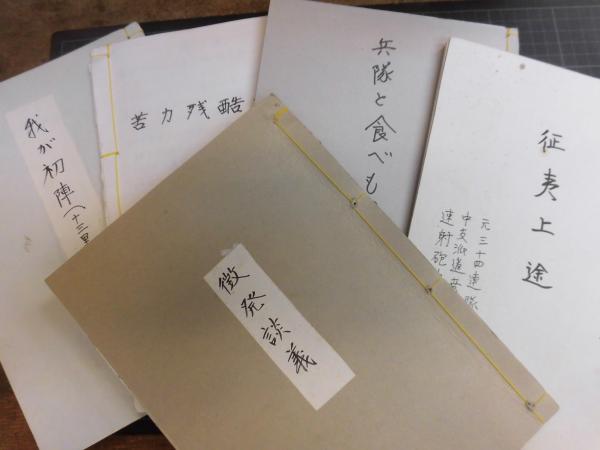 我が初陣へ十三里
苦力残酷
兵隊と食べも
征夷上途
元三十四連隊
中支派遣
連射砲
徴発談義